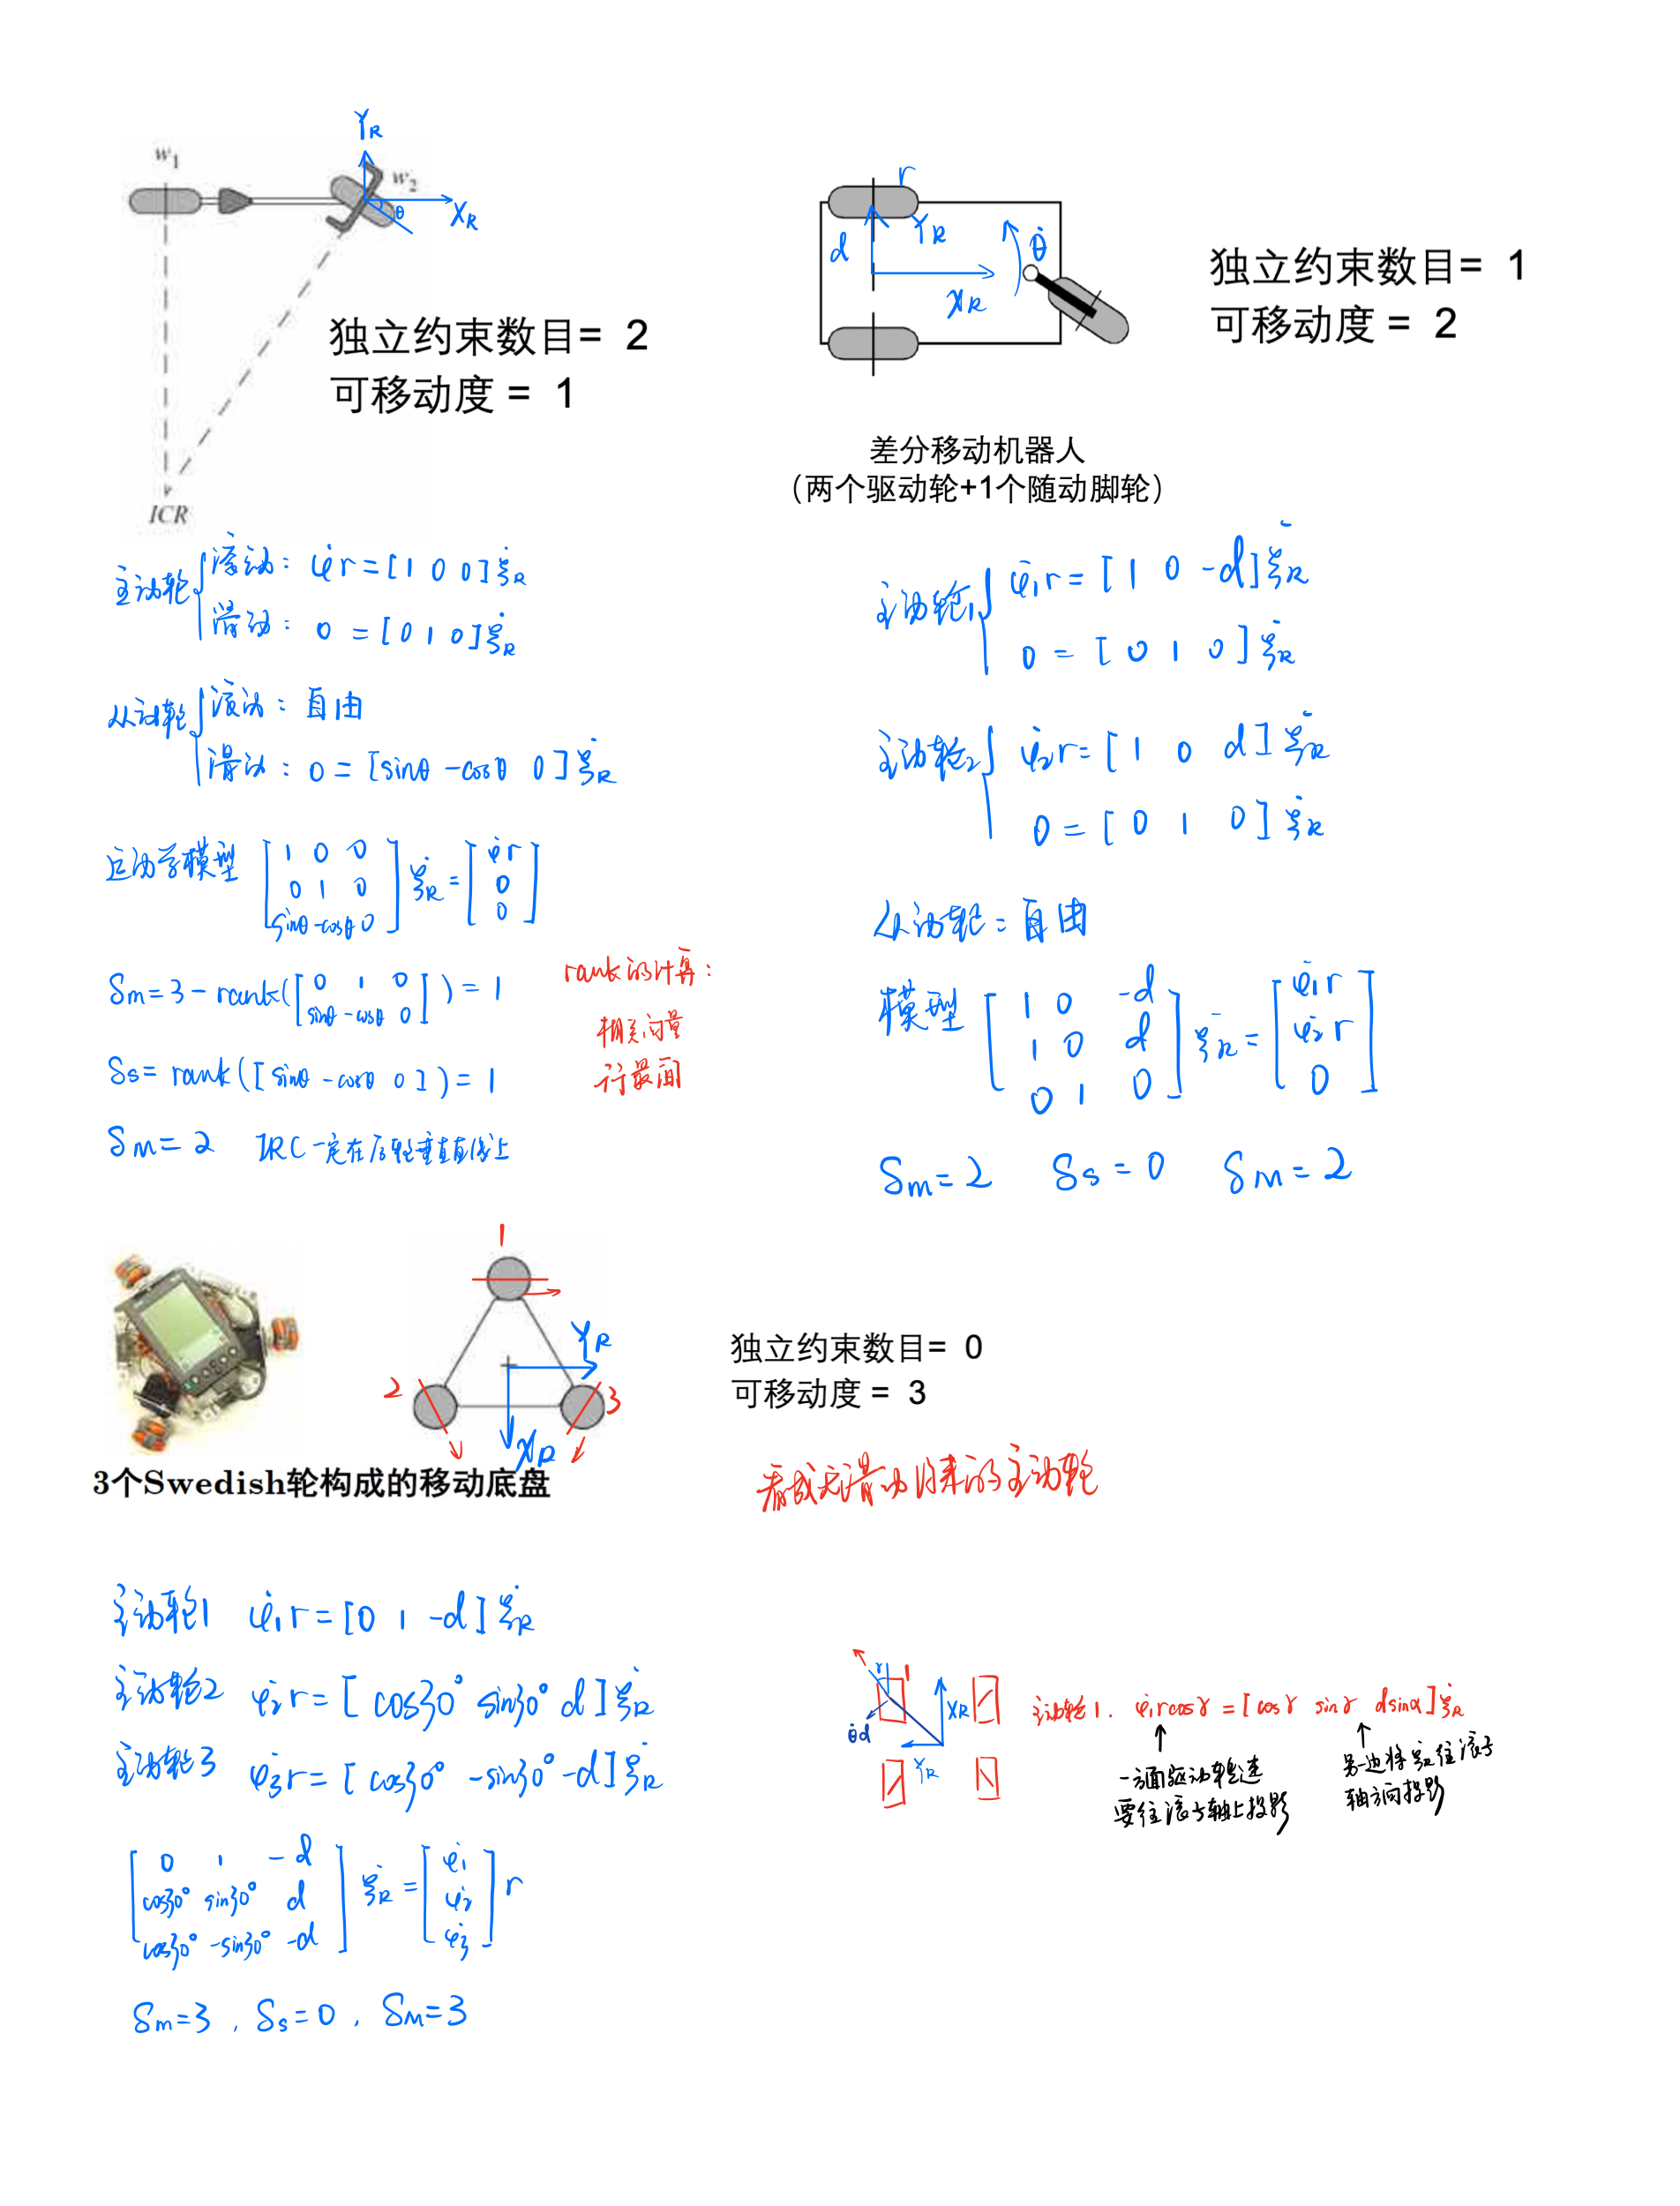 Y_R
w₁
w₂
θ
X_R
独立约束数目= 2
可移动度 = 1
ICR
主动轮 滚动: φ̇r = [1 0 0] ξ̇_R
滑动: 0 = [0 1 0] ξ̇_R
从动轮 滚动: 自由
滑动: 0 = [sinθ -cosθ 0] ξ̇_R
运动学模型 [1 0 0; 0 1 0; sinθ -cosθ 0] ξ̇_R = [φ̇r; 0; 0]
δm = 3 - rank([0 1 0; sinθ -cosθ 0]) = 1
δs = rank([sinθ -cosθ 0]) = 1
δM = 2 IRC一定在后轮垂直直线上
rank的计算:
相关向量
行最简
r
d
Y_R
X_R
θ̇
独立约束数目= 1
可移动度 = 2
差分移动机器人
（两个驱动轮+1个随动脚轮）
主动轮1 φ̇₁r = [1 0 -d] ξ̇_R
0 = [0 1 0] ξ̇_R
主动轮2 φ̇₂r = [1 0 d] ξ̇_R
0 = [0 1 0] ξ̇_R
从动轮: 自由
模型 [1 0 -d; 1 0 d; 0 1 0] ξ̇_R = [φ̇₁r; φ̇₂r; 0]
δm = 2 δs = 0 δM = 2
1
2
3
Y_R
X_R
3个Swedish轮构成的移动底盘
独立约束数目= 0
可移动度 = 3
看成无滑动约束的主动轮
主动轮1 φ̇₁r = [0 1 -d] ξ̇_R
主动轮2 φ̇₂r = [cos30° sin30° d] ξ̇_R
主动轮3 φ̇₃r = [cos30° -sin30° -d] ξ̇_R
[0 1 -d; cos30° sin30° d; cos30° -sin30° -d] ξ̇_R = [φ̇₁; φ̇₂; φ̇₃] r
δm = 3, δs = 0, δM = 3
γ
1
θ̇d
X_R
Y_R
主动轮1. φ̇₁rcosγ = [cosγ sinγ dsinα] ξ̇_R
一方面驱动轮速
要往滚子轴上投影
另一边将ξ̇_R往滚子
轴方向投影